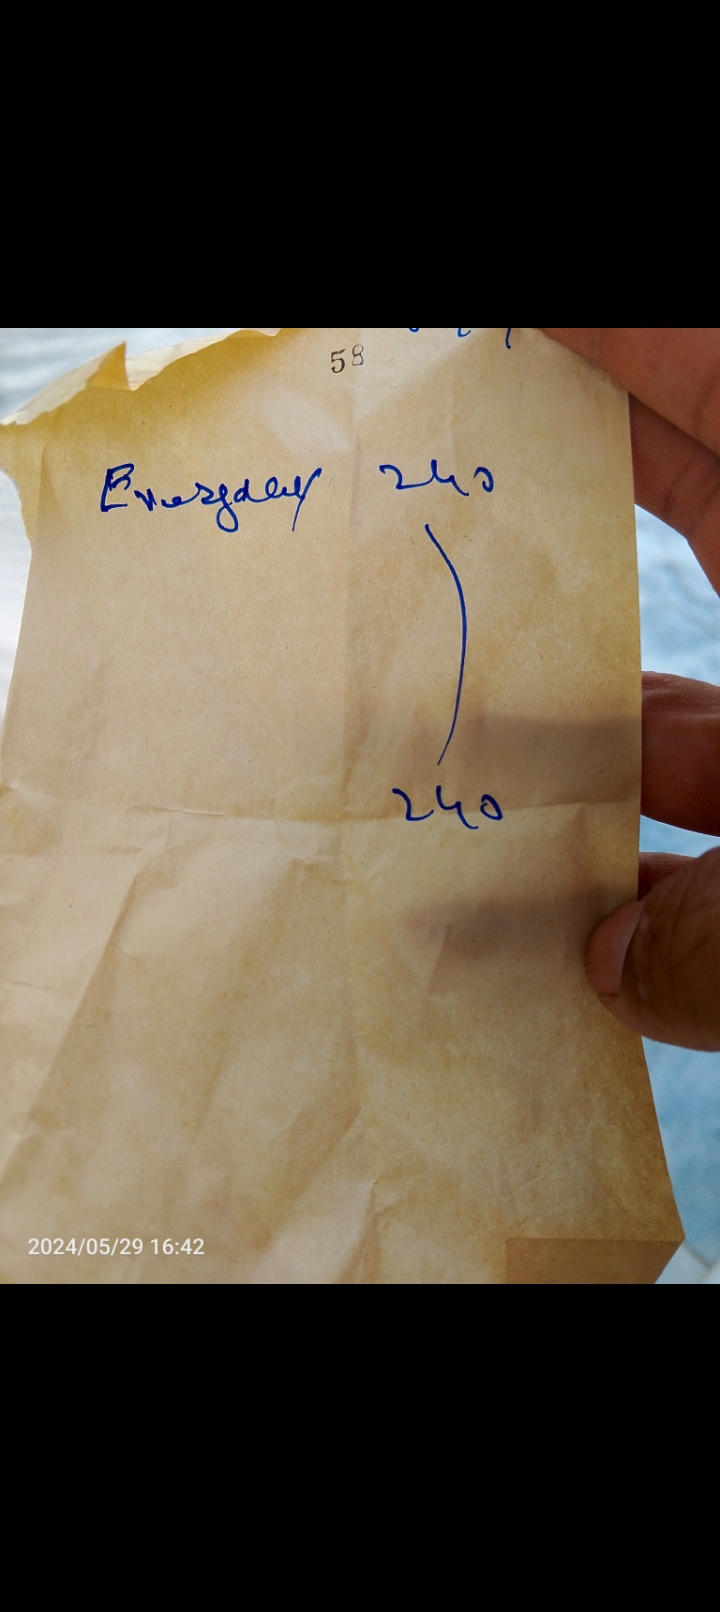 58
Everyday 240
240
2024/05/29 16:42